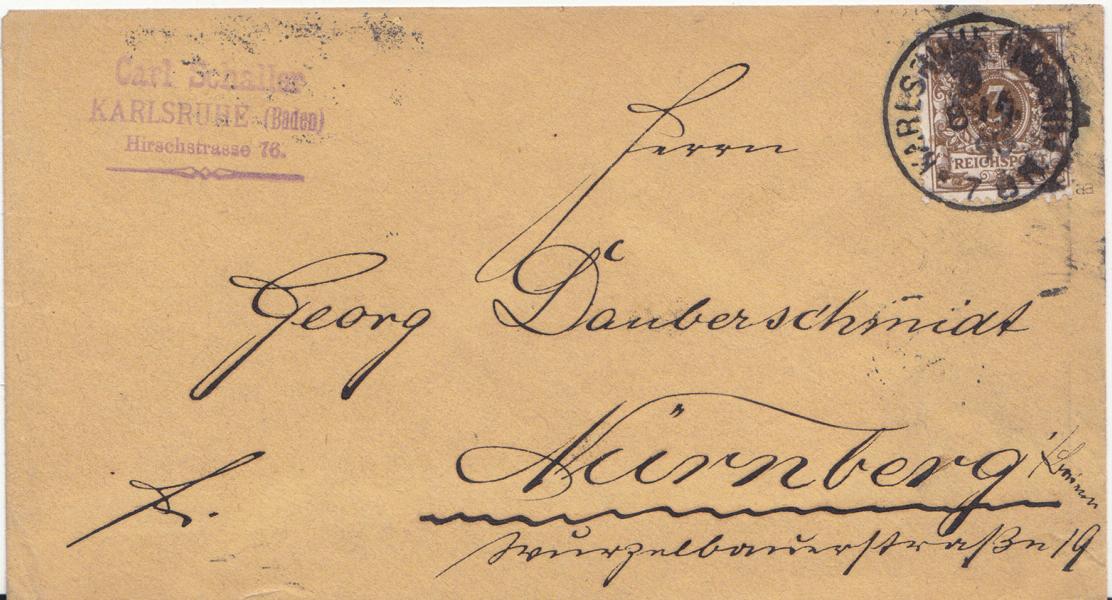 Carl Schaller
KARLSRUHE (Baden)
Hirschstrasse 76.
KARLSRUHE
REICHSPOST
3
Herrn
Georg Dauberschmidt
Nürnberg
Fr.
Wurzelbauerstraße 19